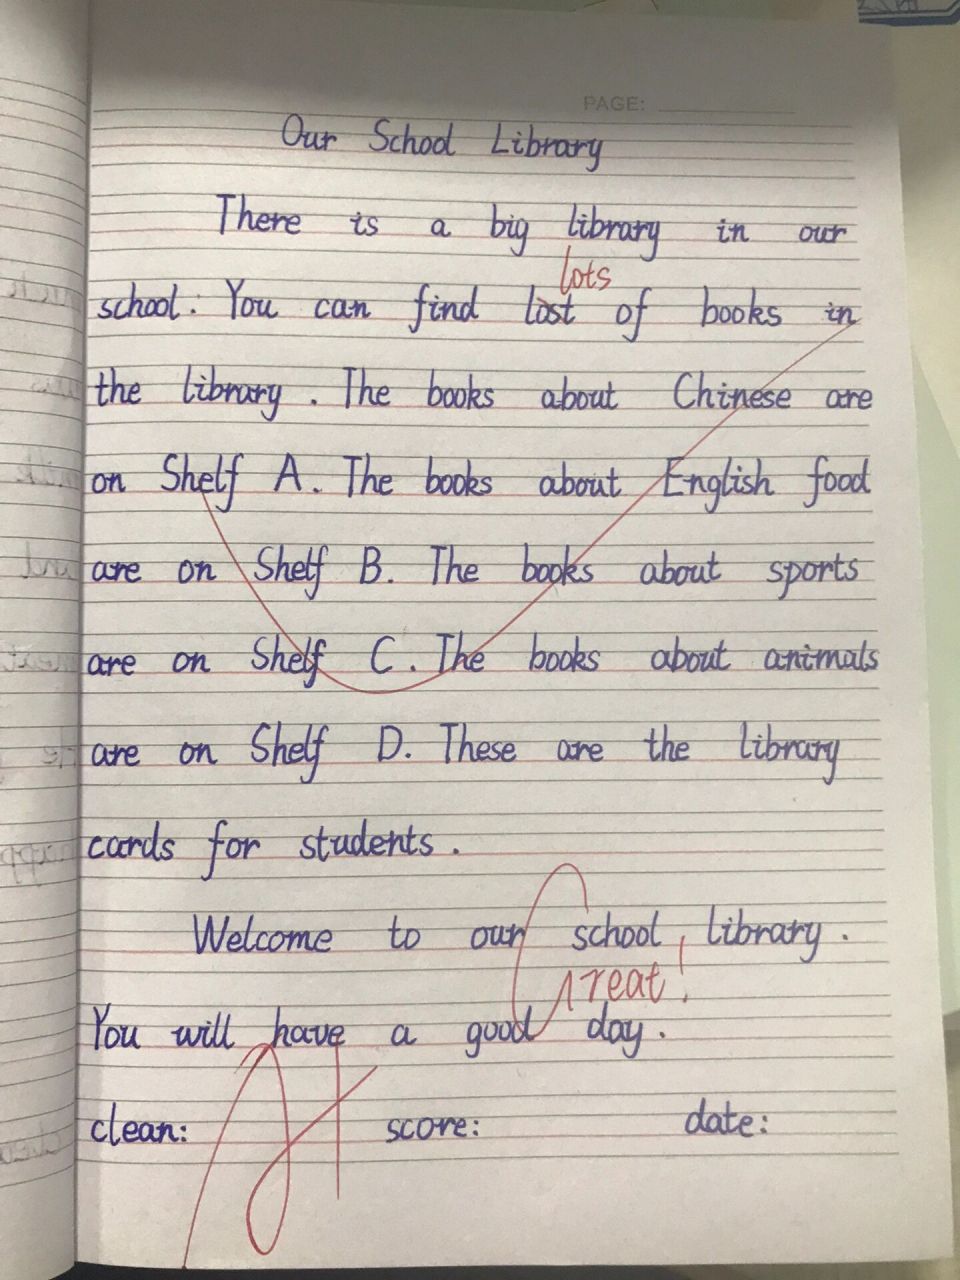 PAGE:
Our School Library
There is a big library in our
lots
school. You can find lost of books in
the library. The books about Chinese are
on Shelf A. The books about English food
are on Shelf B. The books about sports
are on Shelf C. The books about animals
are on Shelf D. These are the library
cards for students.
Welcome to our school library.
Great!
You will have a good day.
clean: score: date:
A+